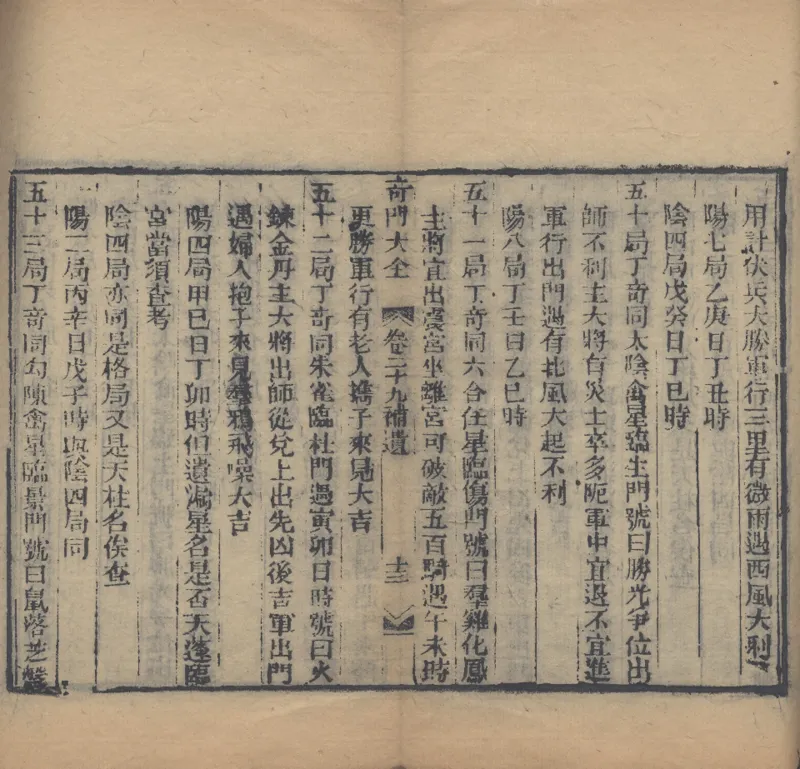 用計伏兵大勝軍行三里有微雨遇西風大利
陽七局乙庚日丁丑時
陰四局戊癸日丁巳時
五十局丁奇同太陰禽星臨生門號曰勝光爭位出
師不利主大將有災士卒多阨軍中宜退不宜進
軍行出門遇有北風大起不利
陽八局丁壬日乙巳時
五十一局丁奇同六合任星臨傷門號曰羣雞化鳳
主將宜出震宮坐離宮可破敵五百騎遇午未時
奇門大全 卷二十九補遺 十三
更勝軍行有老人攜子來見大吉
五十二局丁奇同朱雀臨杜門遇寅卯日時號曰火
鍊金丹主大將出師從兌上出先凶後吉軍出門
遇婦人抱子來見羣鴉飛噪大吉
陽四局甲巳日丁卯時但遺漏星名是否天蓬臨
宮當須查考
陰四局亦同是格局又是天柱名俟查
陽二局丙辛日戊子時與陰四局同
五十三局丁奇同勾陳禽星臨景門號曰鼠落芝盤